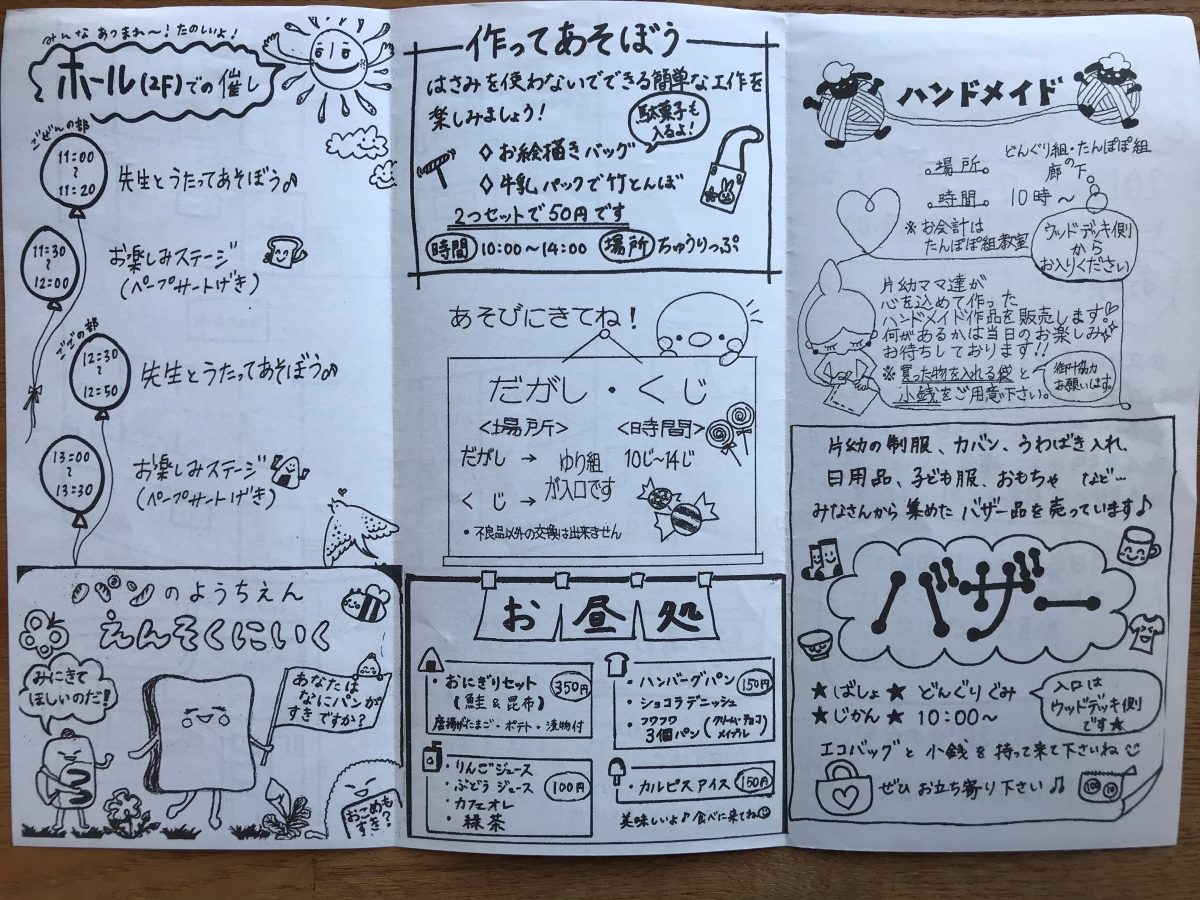 みんなあつまれ〜!たのしいよ!
ホール(2F)での催し
ごぜんの部
11:00
〜
11:20
先生とうたってあそぼう♪
11:30
〜
12:00
お楽しみステージ
(ペープサートげき)
ごごの部
12:30
〜
12:50
先生とうたってあそぼう♪
13:00
〜
13:30
お楽しみステージ
(ペープサートげき)
パンのようちえん
えんそくにいく
みにきて
ほしいのだ!
あなたは
なにパンが
すきですか?
おこめも
すき?
作ってあそぼう
はさみを使わないでできる簡単な工作を
楽しみましょう!
駄菓子も
入るよ!
◇お絵描きバッグ
◇牛乳パックで竹とんぼ
2つセットで50円です
時間 10:00〜14:00 場所 ちゅうりっぷ
あそびにきてね!
だがし・くじ
<場所> <時間>
だがし → ゆり組 10じ〜14じ
くじ → が入口です
・不良品以外の交換は出来ません
お昼処
・おにぎりセット 350円
(鮭&昆布)
唐揚げ・たまご・ポテト・漬物付
・りんごジュース
・ぶどうジュース 100円
・カフェオレ
・緑茶
・ハンバーグパン 150円
・ショコラデニッシュ
・フワフワ
3個パン(クリーム・チョコ
メイプル)
・カルピスアイス 150円
美味しいよ♪食べに来てね☺
ハンドメイド
場所。 どんぐり組・たんぽぽ組
の
廊下。
時間 10時〜
※お会計は
たんぽぽ組教室
ウッドデッキ側
から
お入りください
片幼ママ達が
心を込めて作った
ハンドメイド作品を販売します。
何があるかは当日のお楽しみ
お待ちしております!!
※買った物を入れる袋と
小銭をご用意下さい。
御協力
お願いします。
片幼の制服、カバン、うわばき入れ、
日用品、子ども服、おもちゃ など…
みなさんから集めたバザー品を売っています♪
バザー
★ばしょ★ どんぐりぐみ
★じかん★ 10:00〜
入口は
ウッドデッキ側
です★
エコバッグと小銭を持って来て下さいね☺
ぜひお立ち寄り下さい♫
100
10